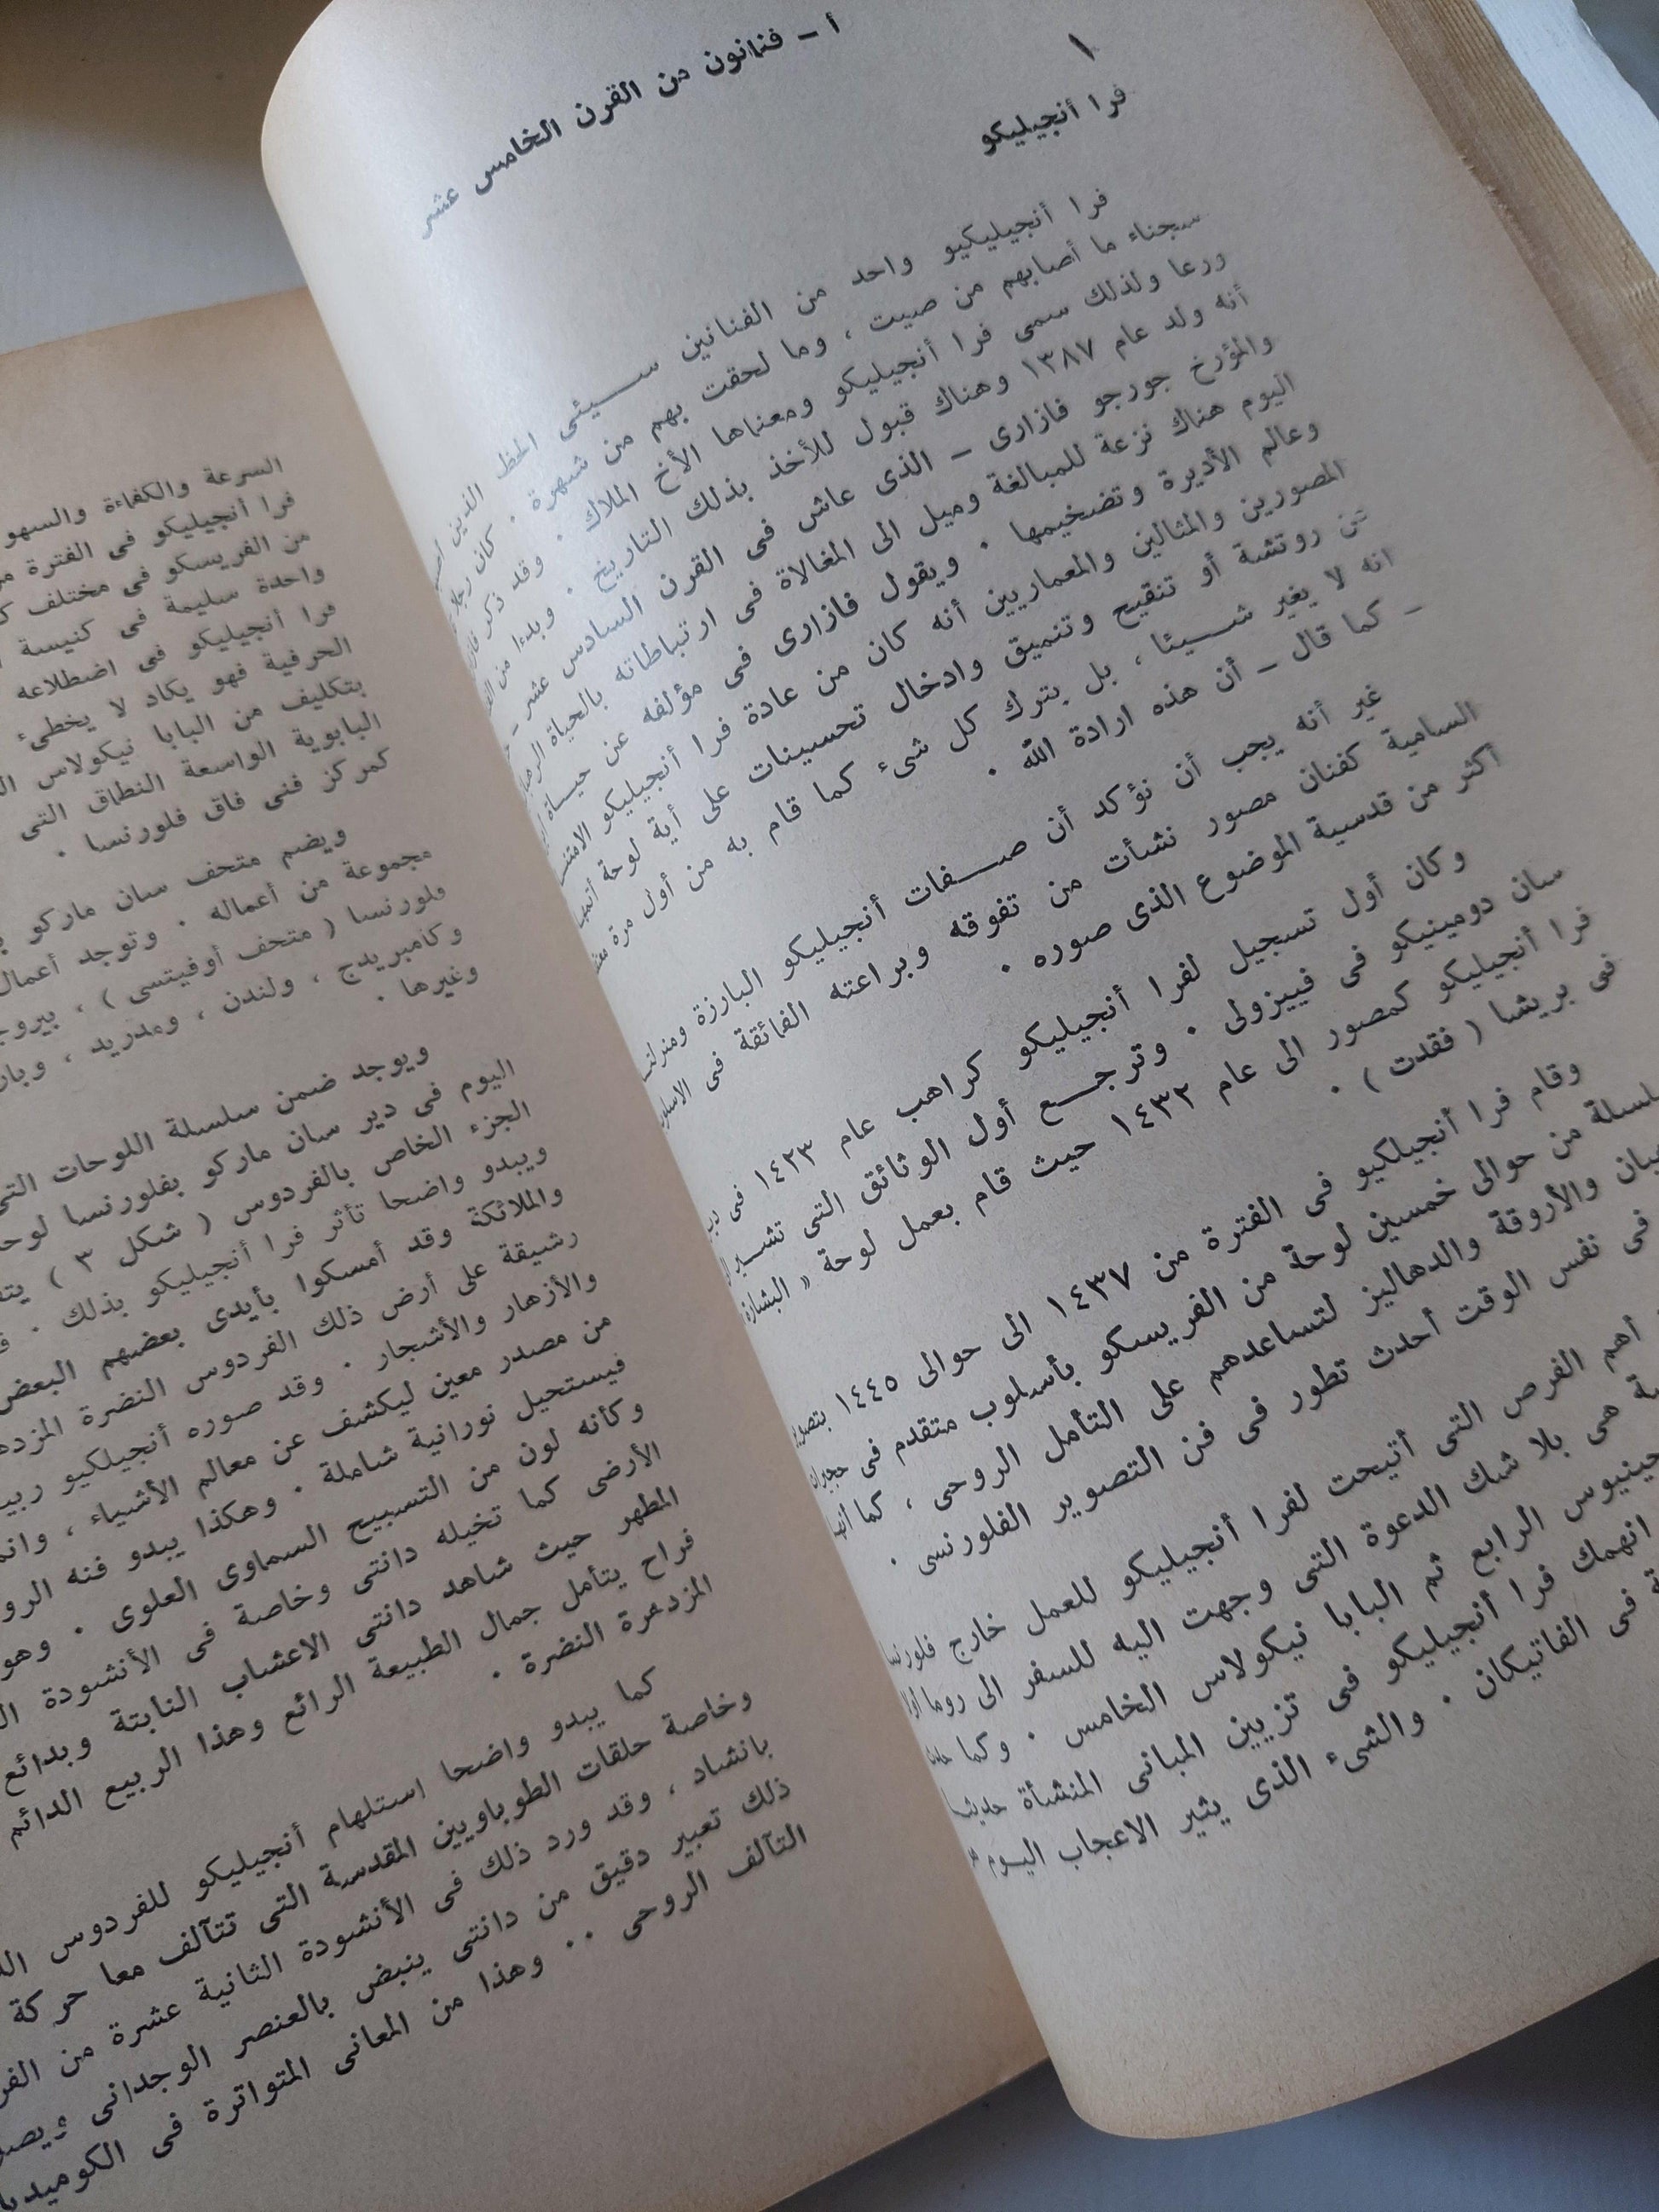 أ – فنانون من القرن الخامس عشر
١
فرا أنجيليكو
فرا أنجيليكيو واحد من الفنانين سيئى الحظ الذين
سجناء ما أصابهم من صيت ، وما لحقت بهم من شهرة . كان رجلا
ورعا ولذلك سمى فرا أنجيليكو ومعناها الأخ الملاك . وقد ذكر
أنه ولد عام ١٣٨٧ وهناك قبول للأخذ بذلك التاريخ . وبدءا من
والمؤرخ جورجو فازارى – الذى عاش فى القرن السادس عشر –
اليوم هناك نزعة للمبالغة وميل الى المغالاة فى ارتباطاته بالحياة
وعالم الأديرة وتضخيمها . ويقول فازارى فى مؤلفه عن حياة
المصورين والمثالين والمعماريين أنه كان من عادة فرا أنجيليكو
عن روتشة أو تنقيح وتنميق وادخال تحسينات على أية لوحة
انه لا يغير شيئا ، بل يترك كل شىء كما قام به من أول مرة
– كما قال – أن هذه ارادة الله .
غير أنه يجب أن نؤكد أن صفات أنجيليكو البارزة
السامية كفنان مصور نشأت من تفوقه وبراعته الفائقة فى
أكثر من قدسية الموضوع الذى صوره .
وكان أول تسجيل لفرا أنجيليكو كراهب عام ١٤٢٣ فى
سان دومينيكو فى فييزولى . وترجع أول الوثائق التى
فرا أنجيليكو كمصور الى عام ١٤٣٢ حيث قام بعمل لوحة « البشارة
فى بريشا ( فقدت ) .
وقام فرا أنجيلكيو فى الفترة من ١٤٣٧ الى حوالى ١٤٤٥
من حوالى خمسين لوحة من الفريسكو بأسلوب متقدم فى
والأروقة والدهاليز لتساعدهم على التأمل الروحى ، كما
فى نفس الوقت أحدث تطور فى فن التصوير الفلورنسى .
أهم الفرص التى أتيحت لفرا أنجيليكو للعمل خارج فلورنسا
هى بلا شك الدعوة التى وجهت اليه للسفر الى روما
الرابع ثم البابا نيكولاس الخامس . وكما
انهمك فرا أنجيليكو فى تزيين المبانى المنشأة حديثا
فى الفاتيكان . والشىء الذى يثير الاعجاب اليوم
السرعة والكفاءة
فرا أنجيليكو فى الفترة
من الفريسكو فى مختلف
واحدة سليمة فى كنيسة
فرا أنجيليكو فى اضطلاعه
الحرفية فهو يكاد لا يخطىء
بتكليف من البابا نيكولاس
البابوية الواسعة النطاق التى
كمركز فنى فاق فلورنسا .
ويضم متحف سان ماركو
مجموعة من أعماله . وتوجد أعمال
فلورنسا ( متحف أوفيتسى ) ،
وكامبريدج ، ولندن ، ومدريد ،
وغيرها .
ويوجد ضمن سلسلة اللوحات
اليوم فى دير سان ماركو بفلورنسا
الجزء الخاص بالفردوس ( شكل ٣ )
ويبدو واضحا تأثر فرا أنجيليكو بذلك .
والملائكة وقد أمسكوا بأيدى بعضهم البعض
رشيقة على أرض ذلك الفردوس النضرة
والأزهار والأشجار . وقد صوره أنجيلكيو
من مصدر معين ليكشف عن معالم الأشياء ،
فيستحيل نورانية شاملة . وهكذا يبدو فنه
وكأنه لون من التسبيح السماوى العلوى . وهو
الأرضى كما تخيله دانتى وخاصة فى الأنشودة
المطهر حيث شاهد دانتى الاعشاب النابتة وبدائع
فراح يتأمل جمال الطبيعة الرائع وهذا الربيع الدائم
المزدهرة النضرة .
كما يبدو واضحا استلهام أنجيليكو للفردوس
وخاصة حلقات الطوباويين المقدسة التى تتآلف معا حركة
بانشاد ، وقد ورد ذلك فى الأنشودة الثانية عشرة من
ذلك تعبير دقيق من دانتى ينبض بالعنصر الوجدانى
التآلف الروحى . . وهذا من المعانى المتواترة فى